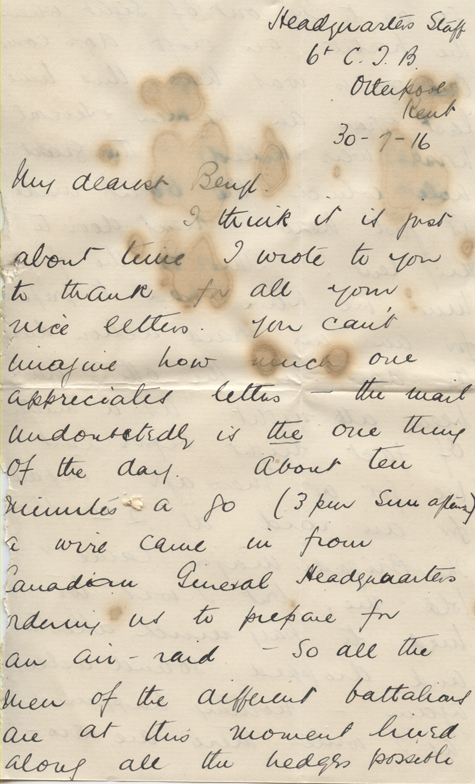 Headquarters Staff
6th C. I. B.
Otterpool
Kent
30-7-16
My dearest Beryl.
I think it is just
about time I wrote to you
to thank for all your
nice letters. You can't
imagine how much one
appreciates letters – the mail
undoubtedly is the one thing
of the day. About ten
minutes a go (3 pm Sun aftern)
a wire came in from
Canadian General Headquarters
ordering us to prepare for
an air-raid - So all the
men of the different battalions
are at this moment lined
along all the hedges possible